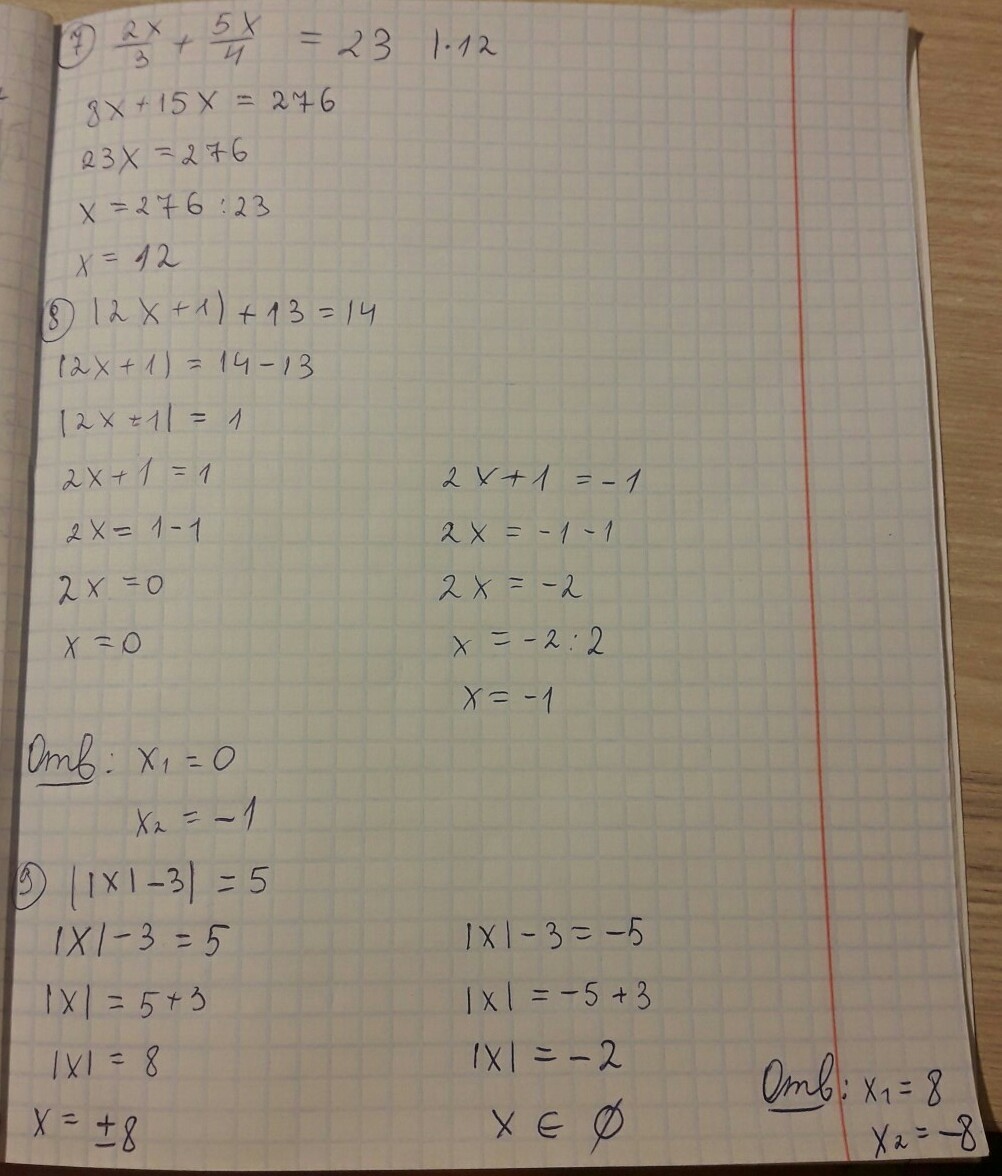 7) 2x/3 + 5x/4 = 23 |·12
8x+15x = 276
23x = 276
x = 276 : 23
x = 12
8) |2x+1| + 13 = 14
|2x+1| = 14-13
|2x+1| = 1
2x+1 = 1
2x = 1-1
2x = 0
x = 0
2x+1 = -1
2x = -1-1
2x = -2
x = -2 : 2
x = -1
Отв: x₁ = 0
x₂ = -1
9) ||x|-3| = 5
|x|-3 = 5
|x| = 5+3
|x| = 8
x = ±8
|x|-3 = -5
|x| = -5+3
|x| = -2
x ∈ ∅
Отв: x₁ = 8
x₂ = -8